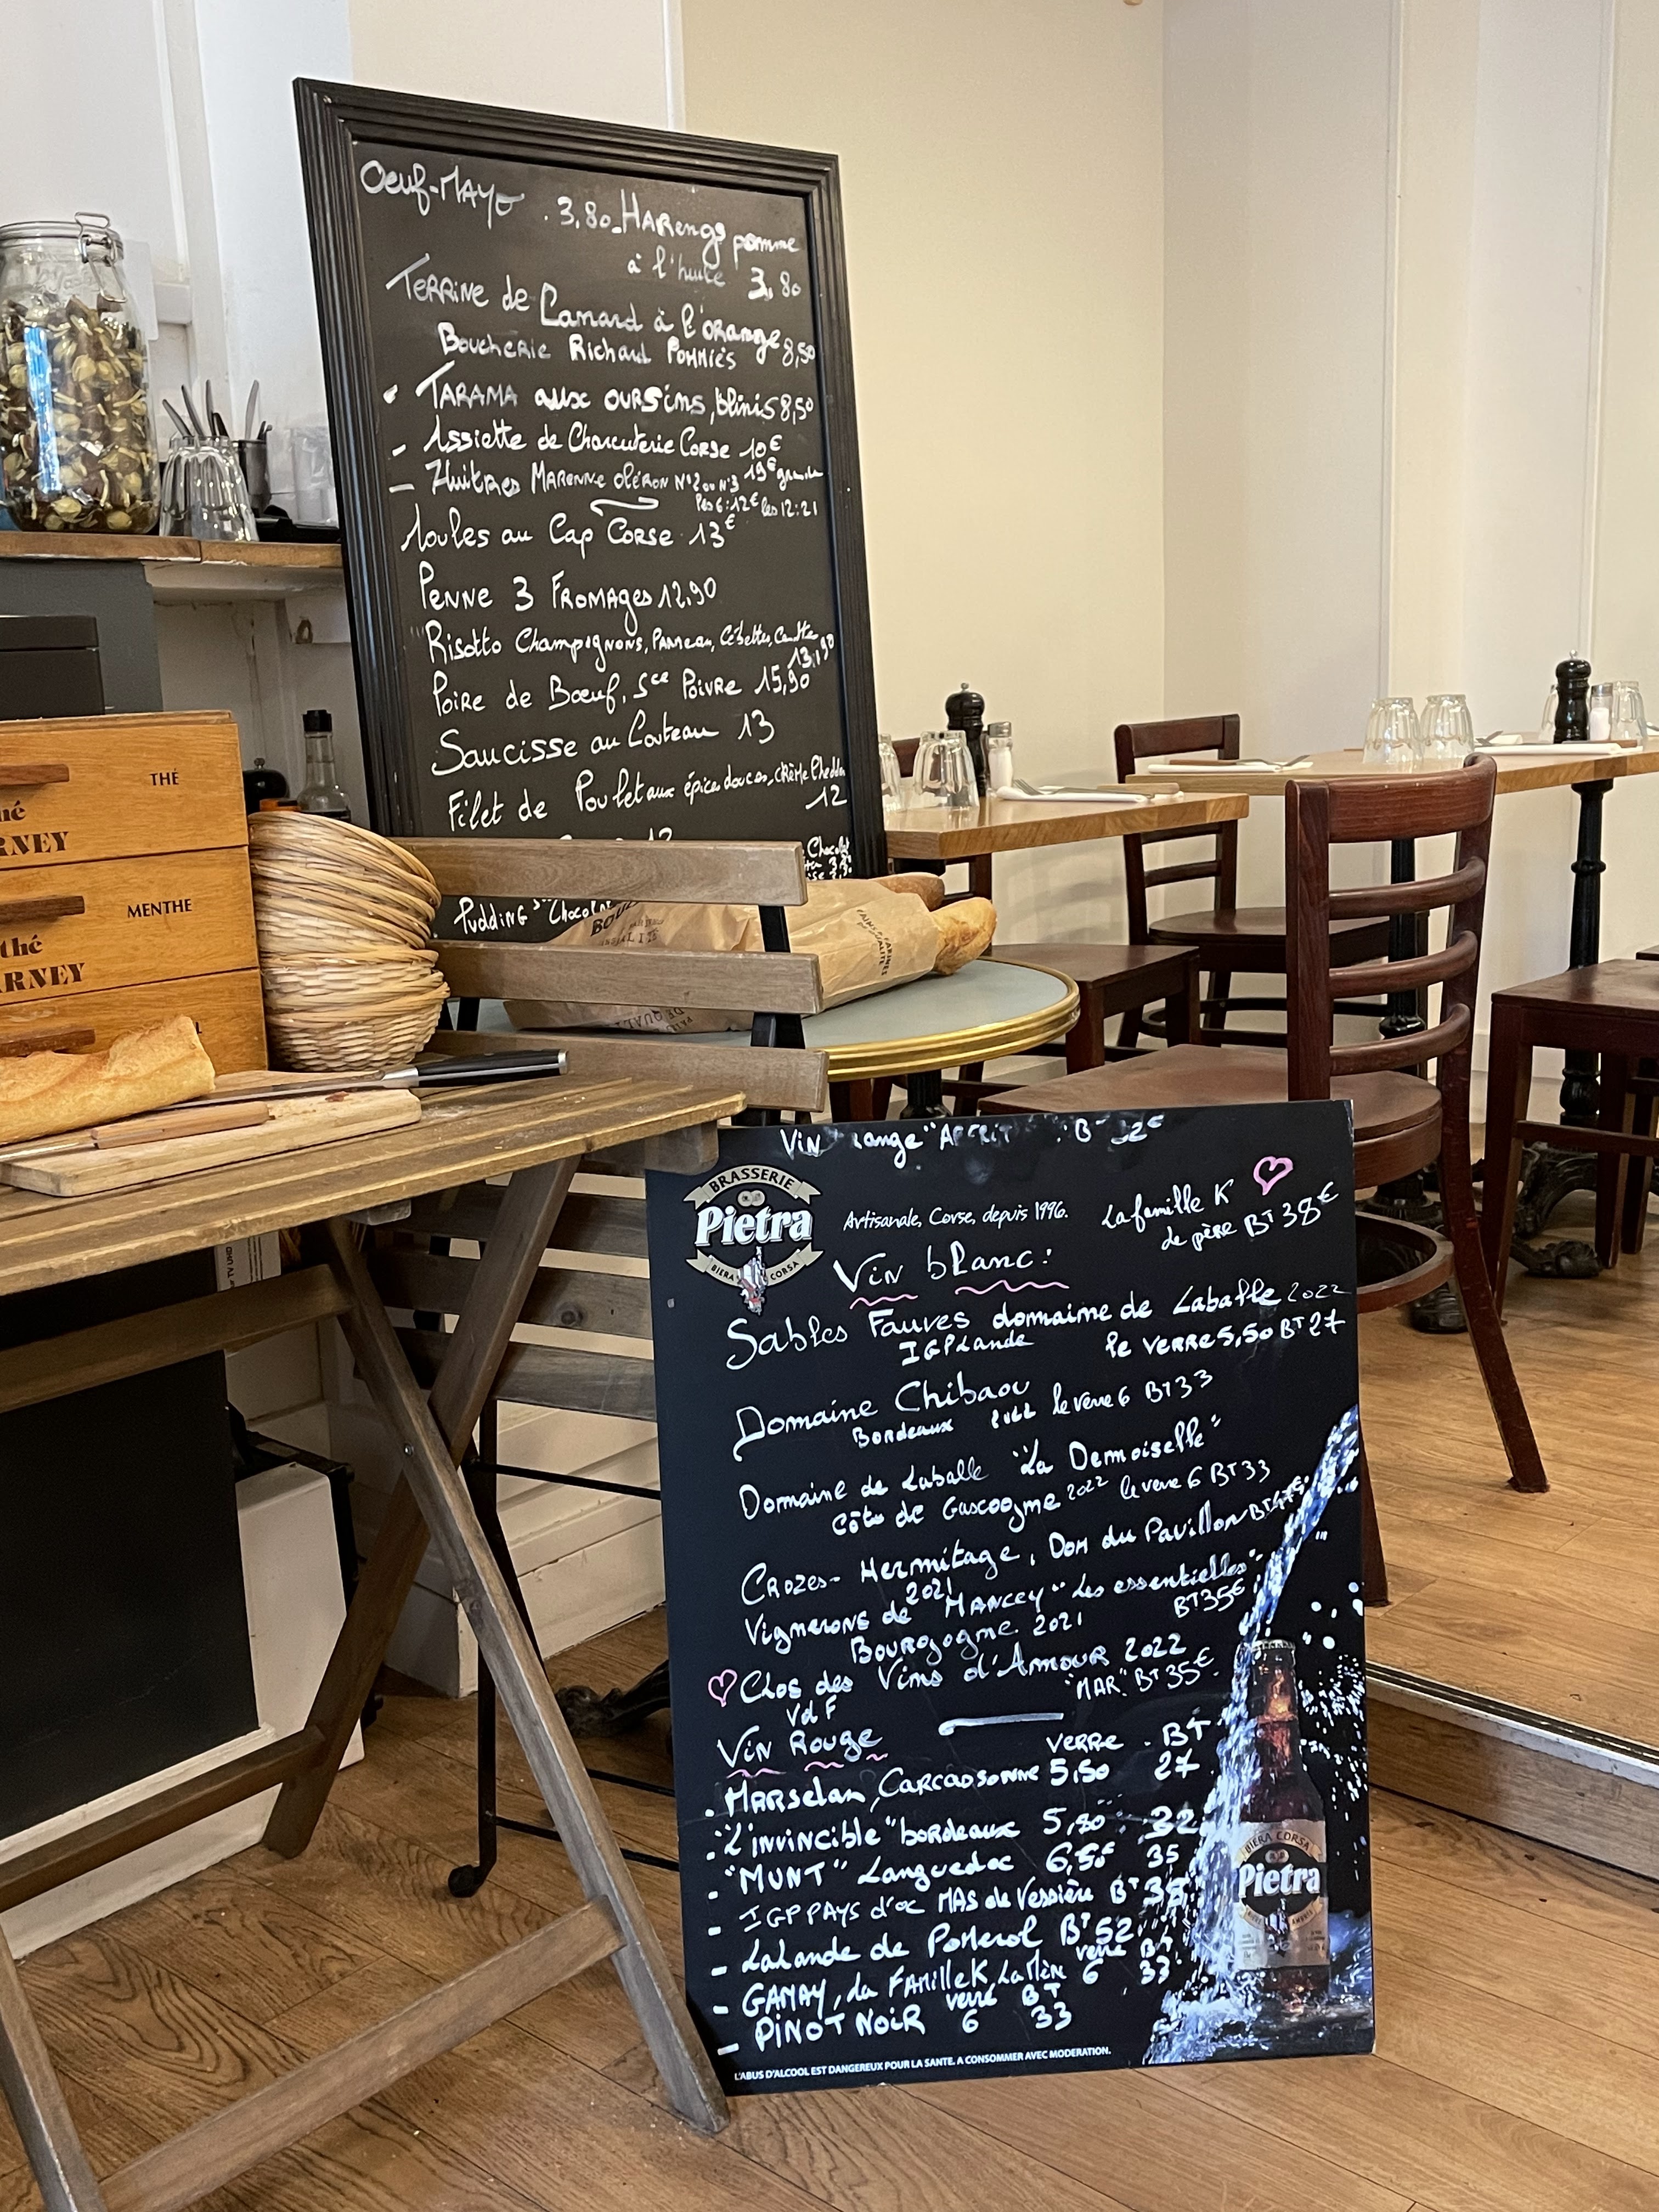 Oeuf-MAYO . 3,80 HARengs pomme
à l'huile 3,80
TERRINE de Canard à l'ORANge 8,50
BoucheRie Richard POMMIÈS
- TARAMA aux OURSins, blinis 8,50
- Assiette de Charcuterie CORSE 10€
- Huitres MARENNE OLÉRON N°2 ou N°3 19€
les 6 : 12€ les 12 : 21
Moules au Cap CORSE 13€
PENNE 3 FROMAges 12,90
Risotto Champignons, Cébettes,
13,90
Poire de Bœuf, Sce POIVRE 15,90
SAUCISSE au Couteau 13
Filet de Poulet aux épices douces, CRÈME Chedda
12
12
Chocolat
Pudding Sce Chocolat
THÉ
thé
RNEY
MENTHE
thé
ARNEY
VIN "APERIT
BRASSERIE
Pietra
BIERA CORSA
Artisanale, Corse, depuis 1996.
La famille K
de père BT 38€
Vin blanc :
Sables Fauves domaine de Laballe 2022
IGP Lande le VERRE 5,50 BT 27
Domaine Chibaou
Bordeaux 2022 le verre 6 BT 33
Domaine de Laballe "La Demoiselle"
Côte de Gascogne 2022 le verre 6 BT 33
CROZES- Hermitage, DOM du Pavillon BT
2021
Vignerons de "MANCEY" Les essentielles"
Bourgogne 2021 BT 35€
Clos des Vins d'AMOUR 2022
Vd F "MAR" BT 35€
Vin Rouge VERRE . BT
. MARselan, CARCASSONNE 5,50 27
. "L'invincible" bordeaux 5,80 32
. "MUNT" Languedoc 6,50 35
- IGP PAYS d'oc MAS de Vessière BT
- LaLande de POMEROL BT 52
verre BT
- GAMAY, La FAMille K, La Mèn 6 33
verre BT
- PINOT NOIR 6 33
BIERA CORSA
Pietra
L'ABUS D'ALCOOL EST DANGEREUX POUR LA SANTE. A CONSOMMER AVEC MODERATION.